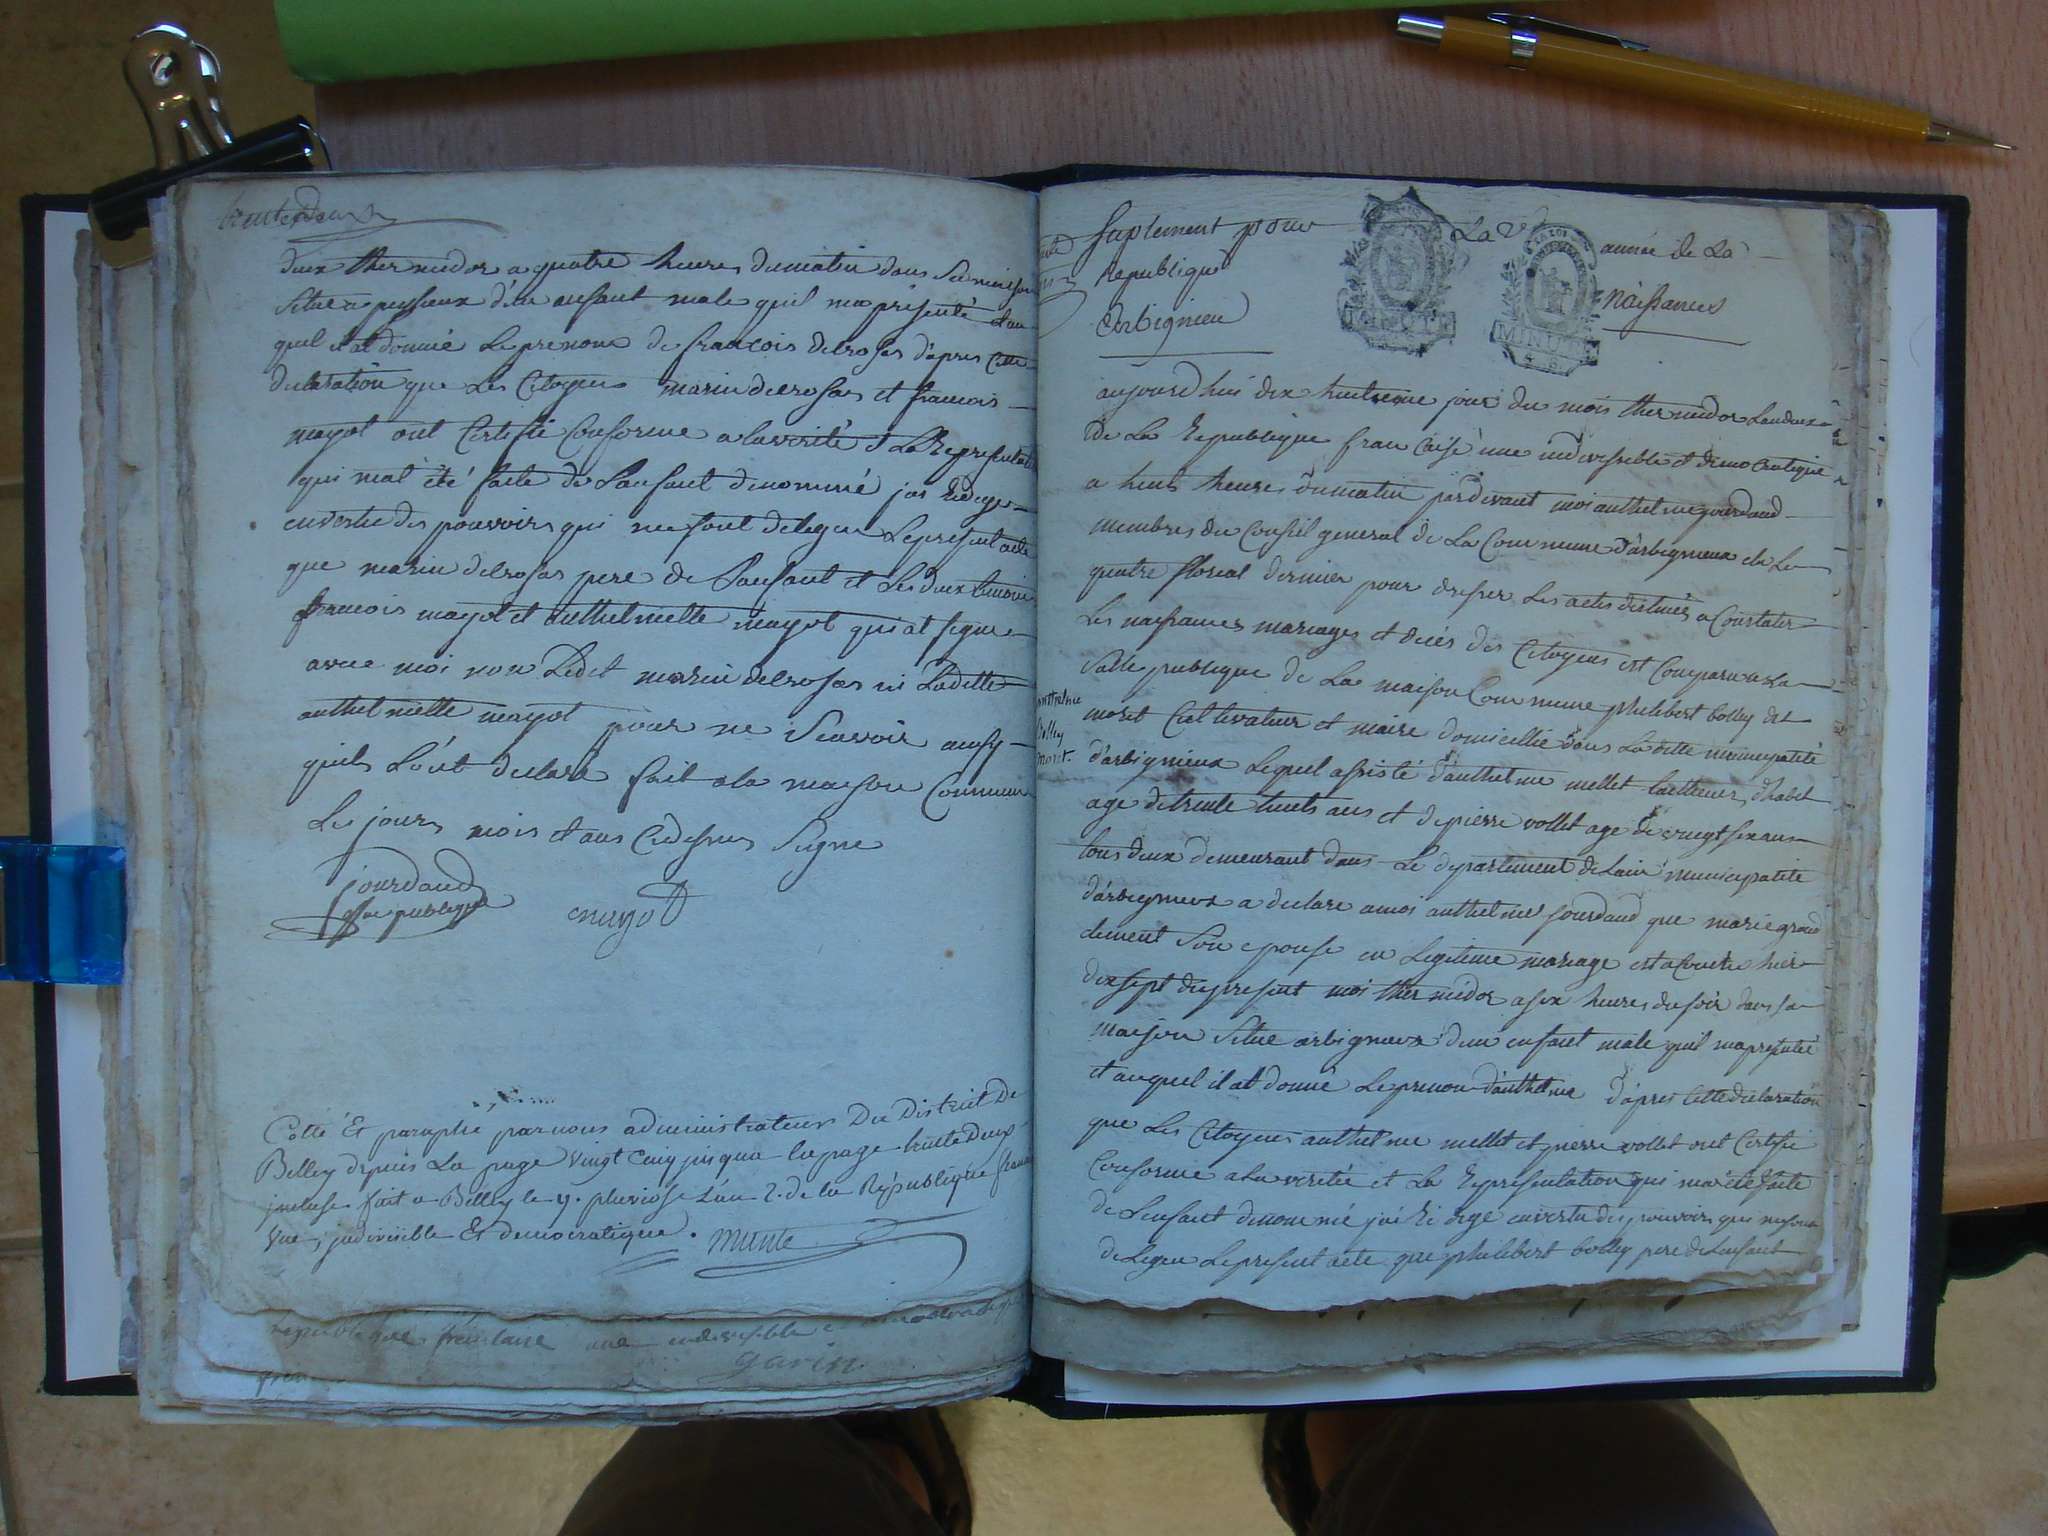 trentedeux
deux thermidor a quatre heures du matin dans sa maison
situe a peysieux d'un enfant male quil ma présenté et au
quel il at donné Le prenom de francois delrosas d'apres cette
declaration que Les Citoyens marin delrosas et francois
mayot ont Certifié Conforme a la verité et La Representation
qui mat été faite de Lanfant denommé jai Redige
envertu des pouvoirs qui me sont delegue Le present acte
que marin delrosas pere de Lanfant et Les deux temoins
francois mayot et anthelmette mayot qui at signe
avec moi non Ledit marin delrosas ni Laditte
anthelmette mayot pour ne Scavoir ausy
quils L'ont declaré fait a la mayson Commune
Les jours mois et ans Cydesus Signe
Jourdand
offr publique
mayot
Cotté Et paraphé par nous administrateur Du District De
Belley depuis La page vingt cinq jusqua la page trente deux
incluse fait a Belley le 9. pluviose L'an 2. de la République francaise
Une, indivisible Et democratique.
republique francaise une indivisible
garin
Suplement pour La 2e année de La
Republique
Arbignieu
Naissances
MINUTE
MINUTE
aujourdhui dix huitieme jour du mois thermidor Landeux
de La Republique francaise une indivisible et democratique
a huit heures du matin pardevant moi anthelme jourdand
membres du Conseil general de La Commune d'arbignieux elu Le
quatre floreal dernier pour dresser Les actes destinés a Constater
Les naissances mariages et decés des Citoyens est Comparu a La
salle publique de La maison Commune philibert bolley dit
moret Cultivateur et maire domicillié dans La ditte municipalité
d'arbignieux Lequel assisté d'anthelme mellet
age de trente huit ans et de pierre vollet age de vingt six ans
tous deux demeurant dans Le departement de Lain municipalité
d'arbignieux a declare a moi anthelme Jourdand que marie grand
clement Son epouse en Legitime mariage est acouché hier
dixsept du present mois thermidor a six heures du soir dans sa
maison Situe arbignieux d'un enfant male quil ma présenté
et auquel il at donné Le prenom d'anthelme d'après Cette declaration
que Les Citoyens anthelme mellet et pierre vollet ont Certifie
Conforme a La verité et La Representation qui ma été faite
de Lenfant denommé jai Redige envertu des pouvoirs qui me sont
delegue Le present acte que philibert bolley pere de Lenfant
anthelme
Bolley
moret.